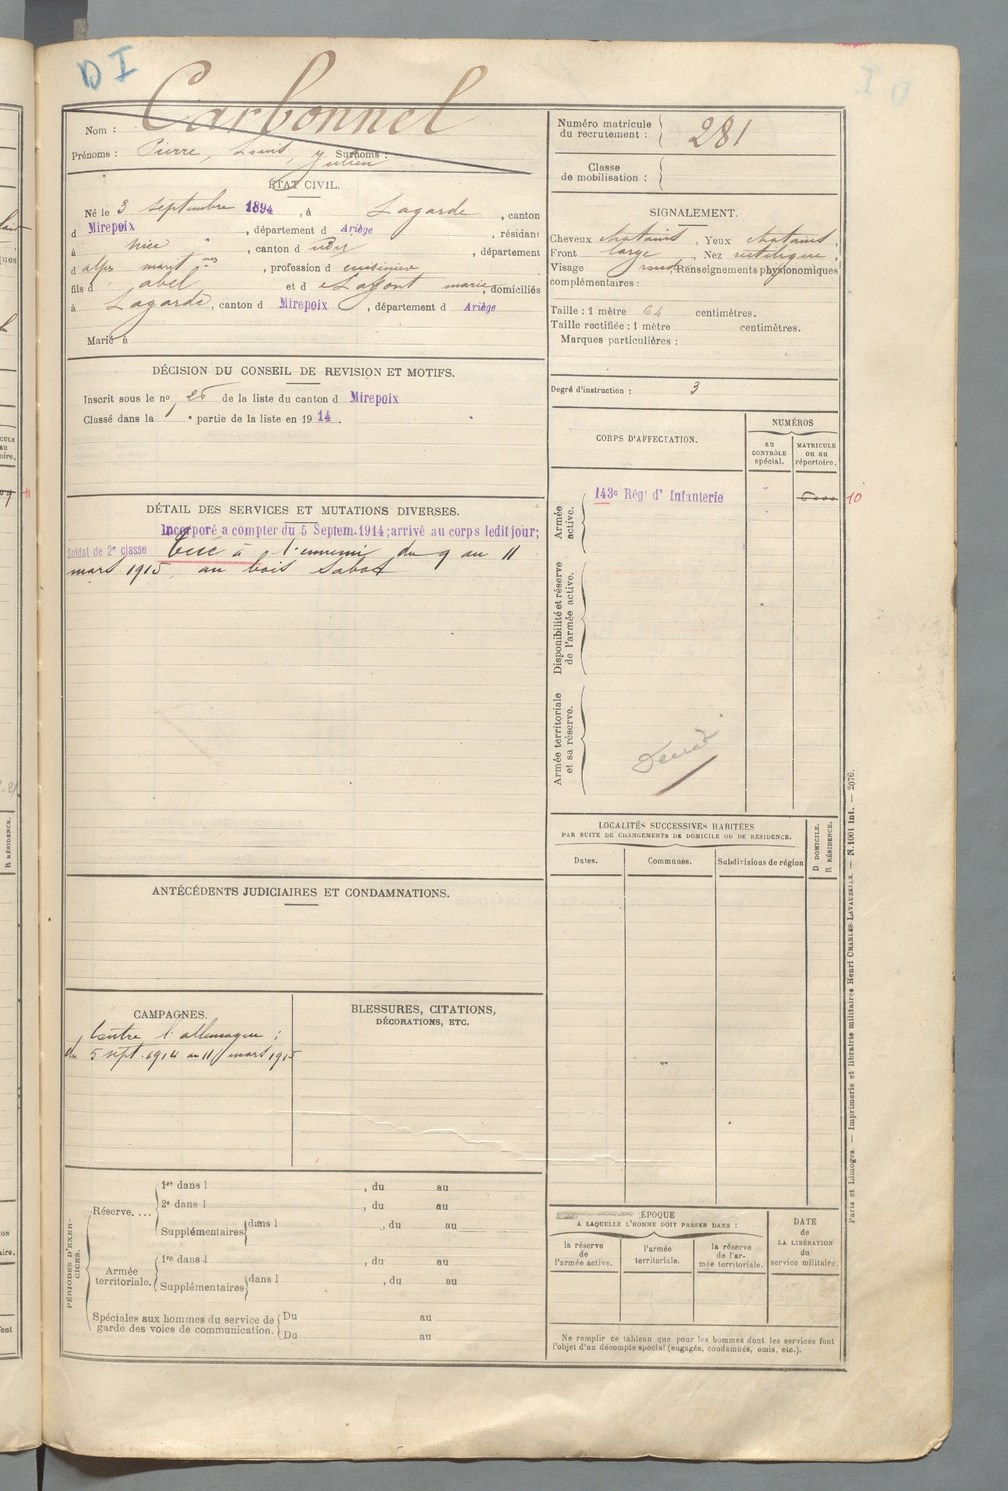 D I
Nom : Carbonnel
Prénoms : Pierre, Louis, Julien Surnoms :
Numéro matricule du recrutement : 281
Classe de mobilisation :
ÉTAT CIVIL.
Né le 3 septembre 1894, à Lagarde, canton
d Mirepoix, département d Ariège, résidant
à Nice, canton d idem, département
d alpes marit mes, profession d cuisinier
fils d Abel et d Laffont marie, domiciliés
à Lagarde, canton d Mirepoix, département d Ariège
Marié à
SIGNALEMENT.
Cheveux chatains, Yeux chatains,
Front large, Nez rectiligne,
Visage rond Renseignements physionomiques
complémentaires :
Taille : 1 mètre 64 centimètres.
Taille rectifiée : 1 mètre centimètres.
Marques particulières :
Degré d'instruction : 3
DÉCISION DU CONSEIL DE REVISION ET MOTIFS.
Inscrit sous le no 25 de la liste du canton d Mirepoix
Classé dans la 1 e partie de la liste en 1914.
CORPS D'AFFECTATION.
NUMÉROS
AU CONTRÔLE spécial.
MATRICULE OU AU répertoire.
Armée active.
143e Rég.t d' Infanterie
10
Disponibilité et réserve de l'armée active.
Armée territoriale et sa réserve.
Décédé
DÉTAIL DES SERVICES ET MUTATIONS DIVERSES.
Incorporé a compter du 5 Septem. 1914; arrivé au corps ledit jour;
Soldat de 2e classe Tué à l'ennemi du 9 au 11
mars 1915, au bois Sabot
LOCALITÉS SUCCESSIVES HABITÉES
PAR SUITE DE CHANGEMENTS DE DOMICILE OU DE RÉSIDENCE.
Dates. Communes. Subdivisions de région
D DOMICILE.
R RÉSIDENCE.
ANTÉCÉDENTS JUDICIAIRES ET CONDAMNATIONS.
CAMPAGNES.
Contre l'allemagne :
du 5 sept. 1914 au 11 mars 1915
BLESSURES, CITATIONS,
DÉCORATIONS, ETC.
PÉRIODES D'EXERCICES.
Réserve....
1re dans l , du au
2e dans l , du au
Supplémentaires dans l , du au
Armée territoriale.
1re dans l , du au
Supplémentaires dans l , du au
Spéciales aux hommes du service de
garde des voies de communication.
Du au
Du au
ÉPOQUE
A LAQUELLE L'HOMME DOIT PASSER DANS :
la réserve de l'armée active.
l'armée territoriale.
la réserve de l'armée territoriale.
DATE de LA LIBÉRATION du service militaire.
Ne remplir ce tableau que pour les hommes dont les services font
l'objet d'un décompte spécial (engagés, condamnés, omis, etc.).
Paris et Limoges. — Imprimerie et librairie militaires Henri CHARLES-LAVAUZELLE. — N. 1001 int. — 2076.